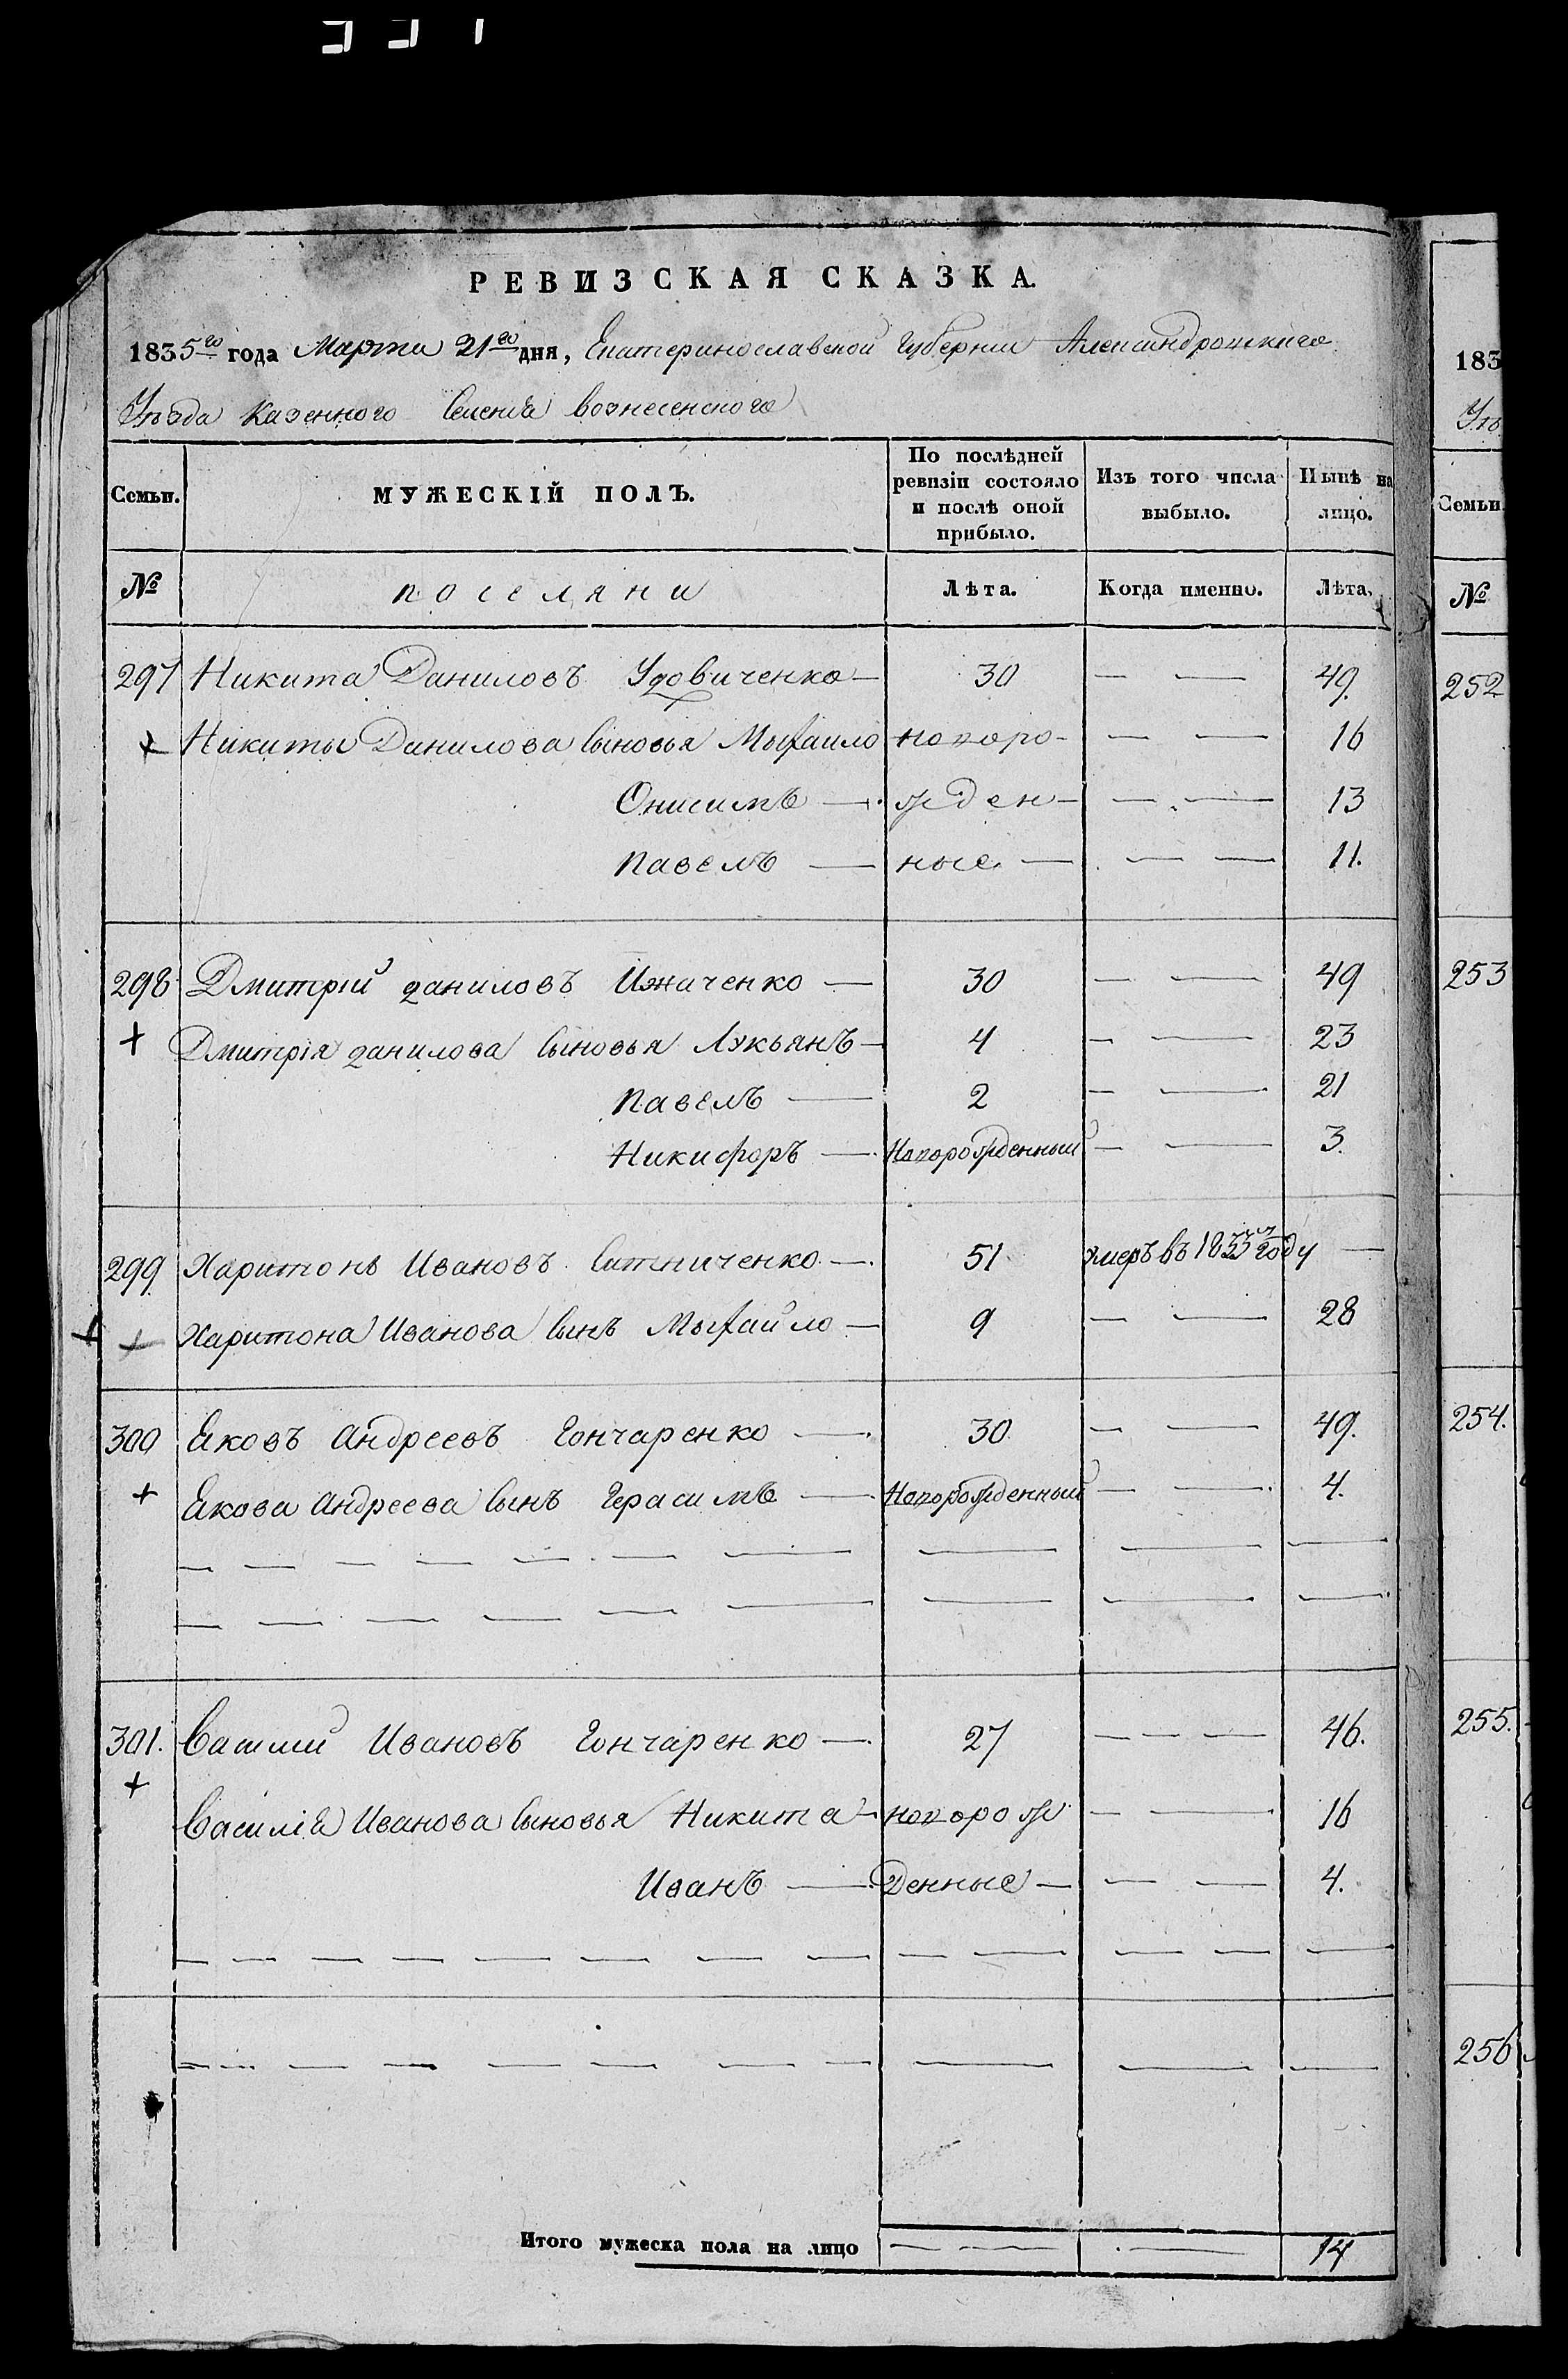 РЕВИЗСКАЯ СКАЗКА.
1835го года Марта 21го дня, Екатеринославской Губернии Александровского
Уезда Казенного Селения Вознесенского
Семьи. МУЖЕСКІЙ ПОЛЪ. По послѣдней ревизіи состояло и послѣ оной прибыло. Изъ того числа выбыло. Нынѣ на лицо.
№ поселяни Лѣта. Когда именно. Лѣта,
297 Никита Даниловъ Удовиченко — 30 — — 49.
Никиты Данилова Сыновья Мыхаило новоро- — — 16
Онисимъ — жден- — — 13
Павелъ — ные — — — 11.
298 Дмитрій Даниловъ Ижаченко — 30 — — 49
+ Дмитрія Данилова Сыновья Лукьянъ — 4 — — 23
Павелъ — 2 — — 21
Никифоръ — Новорожденный — — 3.
299 Харитонъ Ивановъ Ситниченко — 51 умеръ въ 1833м году —
+ + Харитона Иванова Сынъ Мыхайло — 9 — — 28
300 Яковъ Андреевъ Гончаренко — 30 — — 49.
+ Якова Андреева Сынъ Герасимъ — Новорожденный — — 4.
301. Василий Ивановъ Гончаренко — 27 — — — 46.
+
Василія Иванова Сыновья Никита — новорож — — 16
Иванъ — Денные — — — 4.
Итого мужеска пола на лицо — — — 14
183
Уѣ
Семьи
№
252
253
254.
255.
256